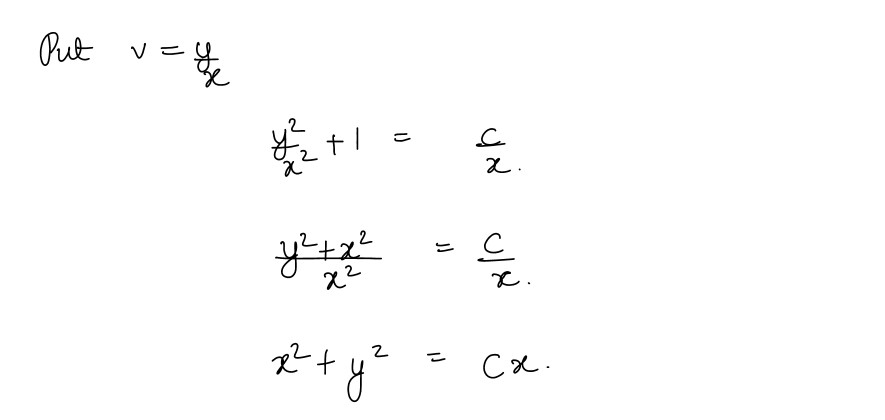 Put v = y/x
y²/x² + 1 = c/x.
(y²+x²)/x² = C/x.
x² + y² = Cx.